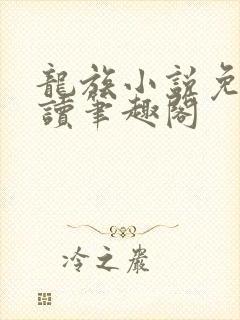 龍族小說免
讀筆趣閣
冷之嚴